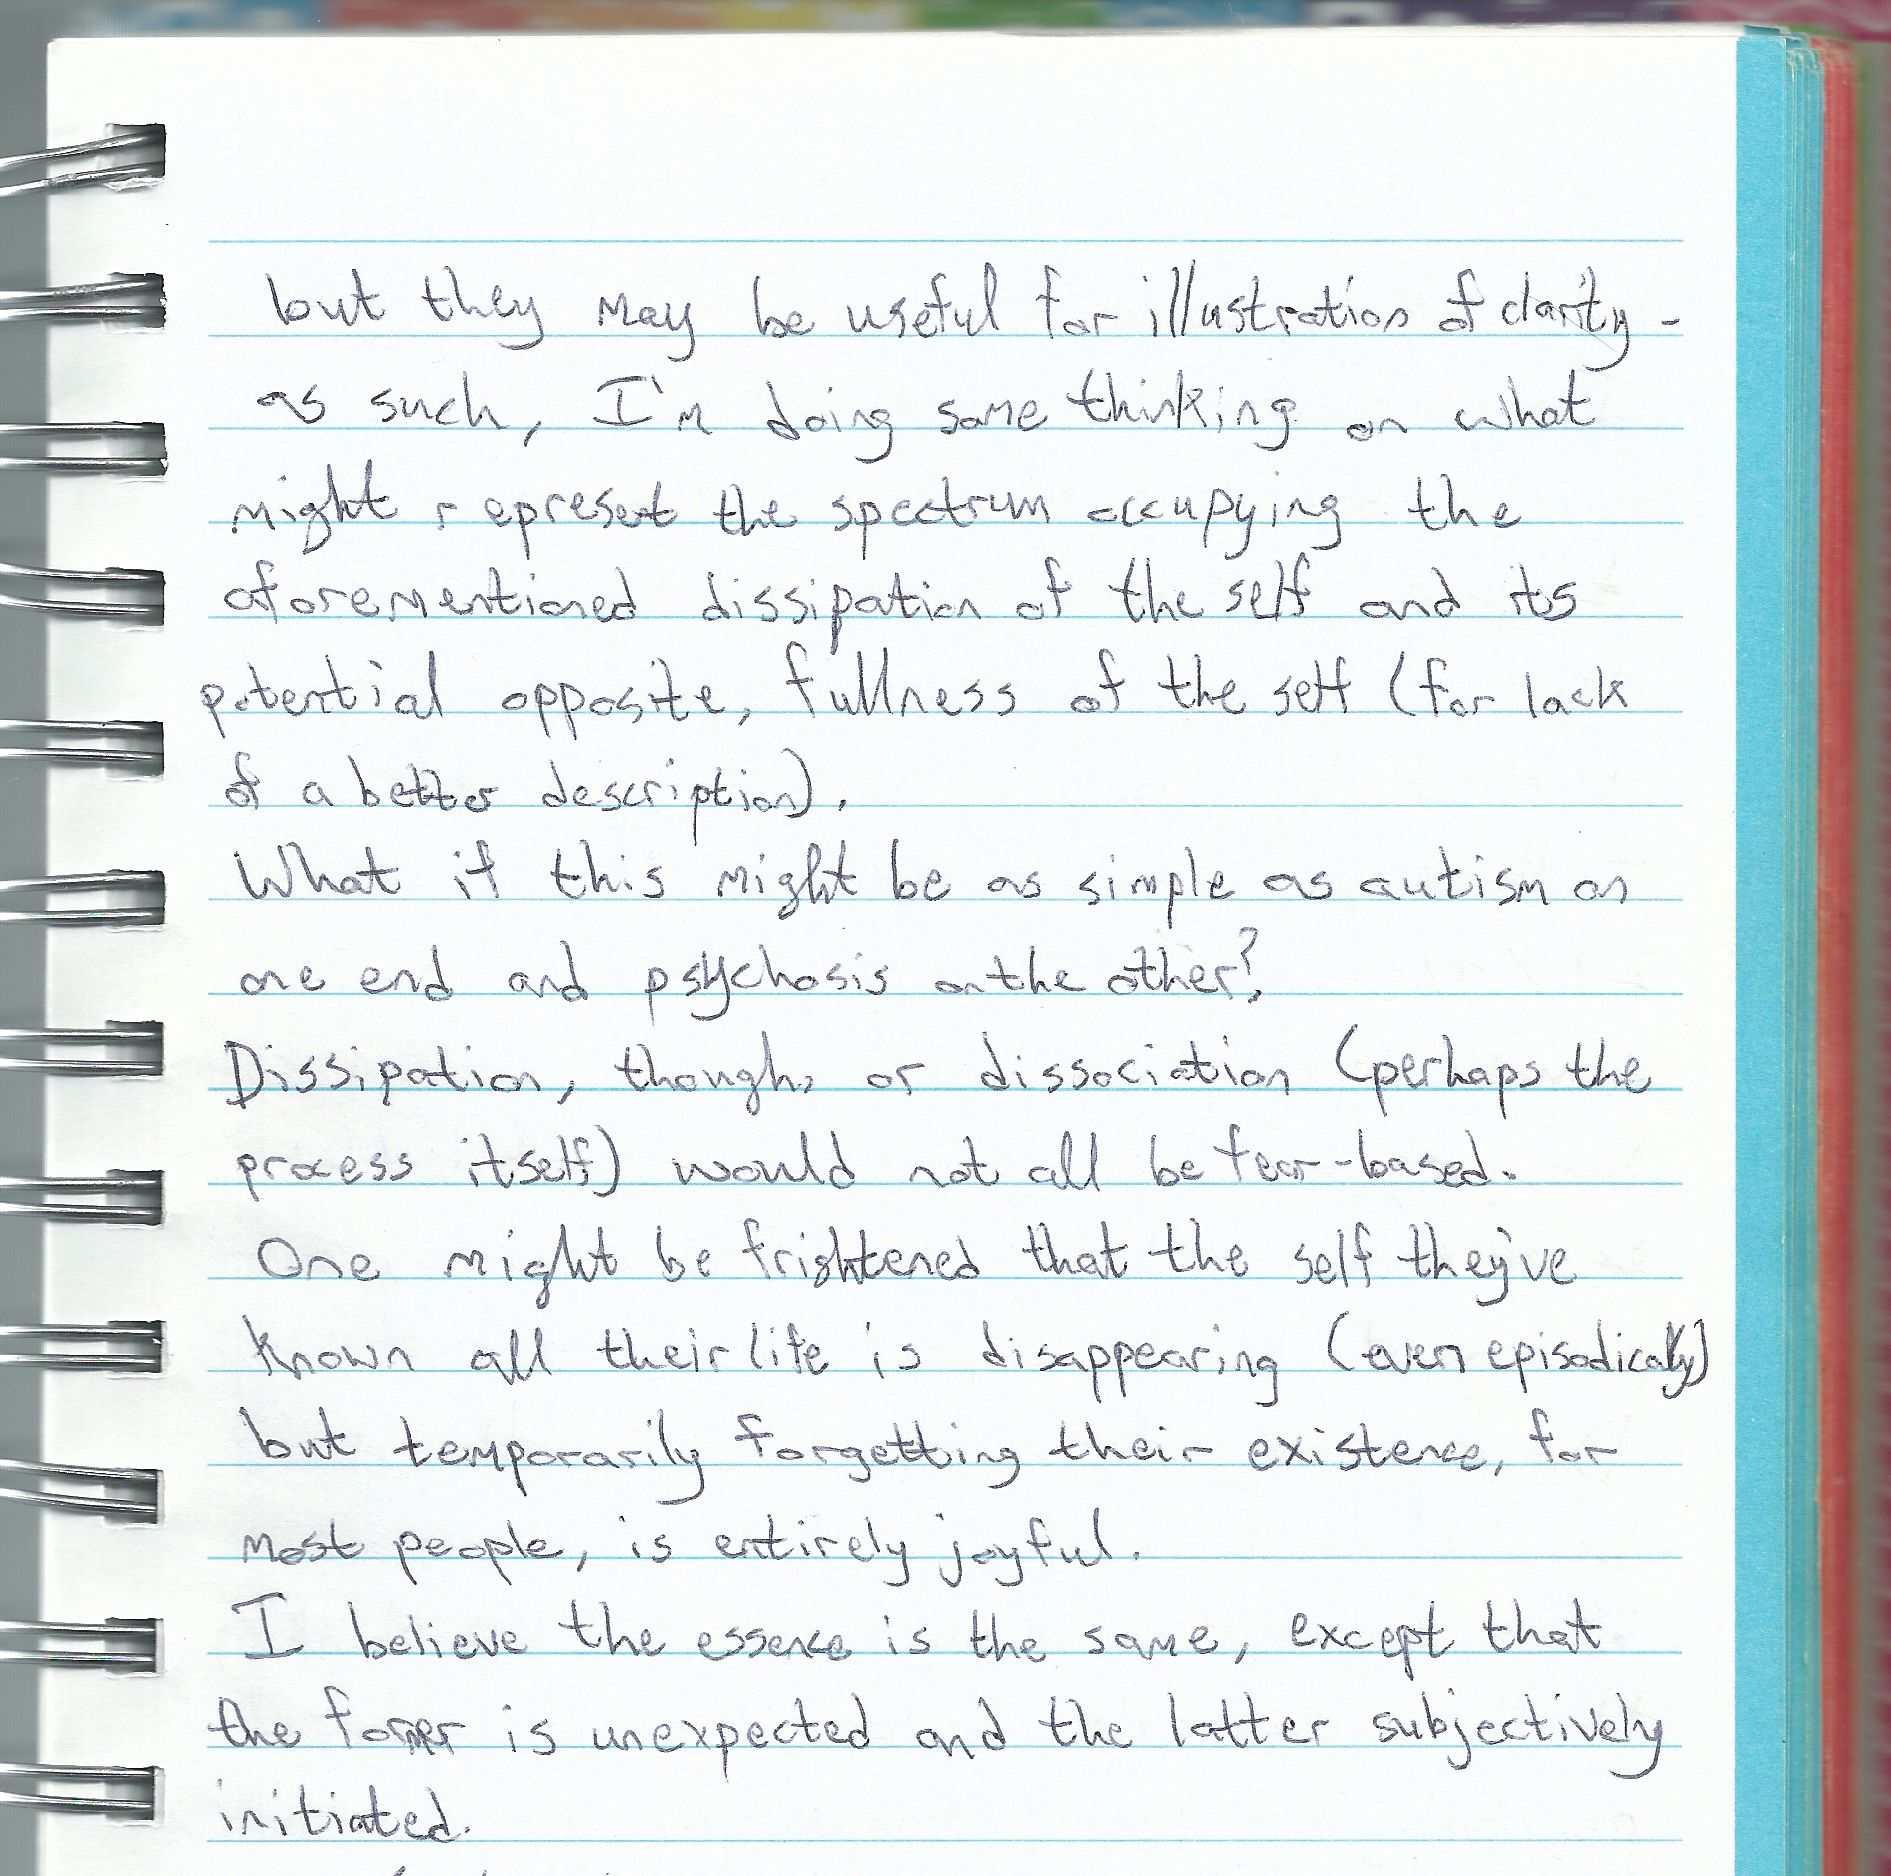 but they may be useful for illustration of clarity -
as such, I'm doing some thinking on what
might represent the spectrum occupying the
aforementioned dissipation of the self and its
potential opposite, fullness of the self (for lack
of a better description).
What if this might be as simple as autism on
one end and psychosis on the other?
Dissipation, though, or dissociation (perhaps the
process itself) would not all be fear-based.
One might be frightened that the self they've
known all their life is disappearing (even episodically)
but temporarily forgetting their existence, for
most people, is entirely joyful.
I believe the essence is the same, except that
the former is unexpected and the latter subjectively
initiated.